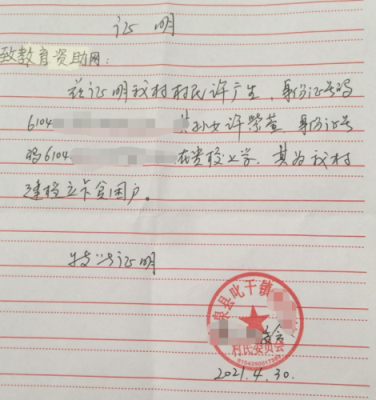 证明
致教育资助网:
兹证明我村村民许广生,身份证号码
6104 其孙女许荣萱,身份证号
码6104 在贵校上学,其为我村
建档立卡贫困户。
特此证明
泉县叱干镇
村民委员会
2021.4.30.